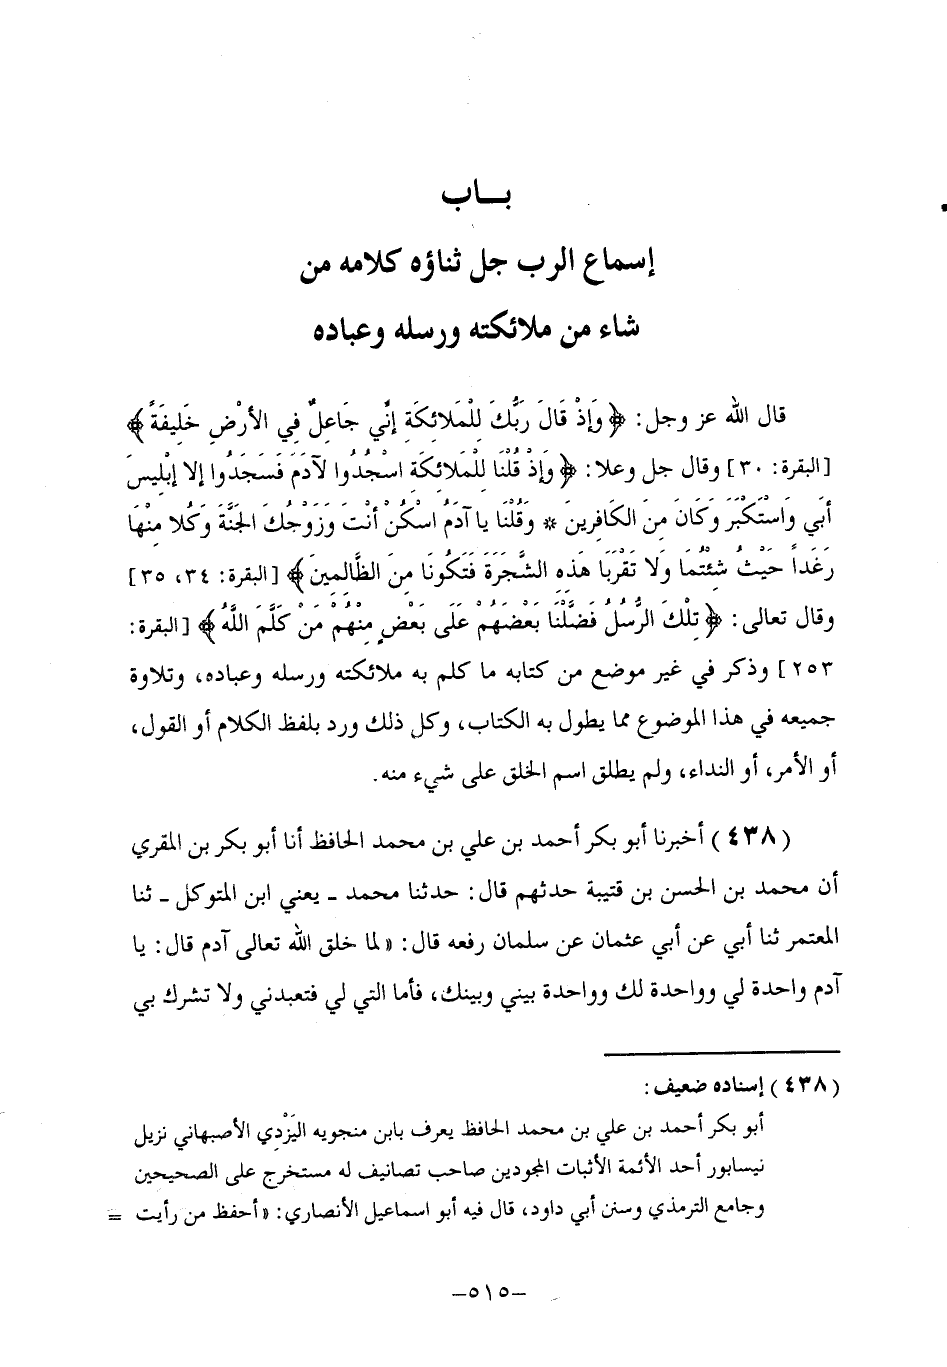 بـــاب
إسماع الرب جل ثناؤه كلامه من
شاء من ملائكته ورسله وعباده
قال الله عز وجل: ﴿ وَإِذْ قَالَ رَبُّكَ لِلْمَلائِكَةِ إِنِّي جَاعِلٌ فِي الأَرْضِ خَلِيفَةً ﴾
[البقرة: ٣٠] وقال جل وعلا: ﴿ وَإِذْ قُلْنَا لِلْمَلائِكَةِ اسْجُدُوا لآدَمَ فَسَجَدُوا إلا إبْلِيسَ
أَبَي وَاسْتَكْبَرَ وَكَانَ مِنَ الكَافِرِينَ * وَقُلْنَا يا آدَمُ اسْكُنْ أَنْتَ وَزَوْجُكَ الجَنَّةَ وَكُلا مِنْهَا
رَغَداً حَيْثُ شِئْتُمَا وَلا تَقْرَبَا هَذِهِ الشَّجَرَةَ فَتَكُونَا مِنَ الظَّالِمِينَ ﴾ [البقرة: ٣٤، ٣٥]
وقال تعالى: ﴿ تِلْكَ الرُّسُلُ فَضَّلْنَا بَعْضَهُمْ عَلَى بَعْضٍ مِنْهُمْ مَنْ كَلَّمَ اللَّهُ ﴾ [البقرة:
٢٥٣] وذكر في غير موضع من كتابه ما كلم به ملائكته ورسله وعباده، وتلاوة
جميعه في هذا الموضوع مما يطول به الكتاب، وكل ذلك ورد بلفظ الكلام أو القول،
أو الأمر، أو النداء، ولم يطلق اسم الخلق على شيء منه.
(٤٣٨) أخبرنا أبو بكر أحمد بن علي بن محمد الحافظ أنا أبو بكر بن المقري
أن محمد بن الحسن بن قتيبة حدثهم قال: حدثنا محمد ـ يعني ابن المتوكل ـ ثنا
المعتمر ثنا أبي عن أبي عثمان عن سلمان رفعه قال: «لما خلق الله تعالى آدم قال: يا
آدم واحدة لي وواحدة لك وواحدة بيني وبينك، فأما التي لي فتعبدني ولا تشرك بي
(٤٣٨) إسناده ضعيف:
أبو بكر أحمد بن علي بن محمد الحافظ يعرف بابن منجويه اليَزْدِي الأصبهاني نزيل
نيسابور أحد الأئمة الأثبات المجودين صاحب تصانيف له مستخرج على الصحيحين
وجامع الترمذي وسنن أبي داود، قال فيه أبو اسماعيل الأنصاري: «أحفظ من رأيت =
–٥١٥–